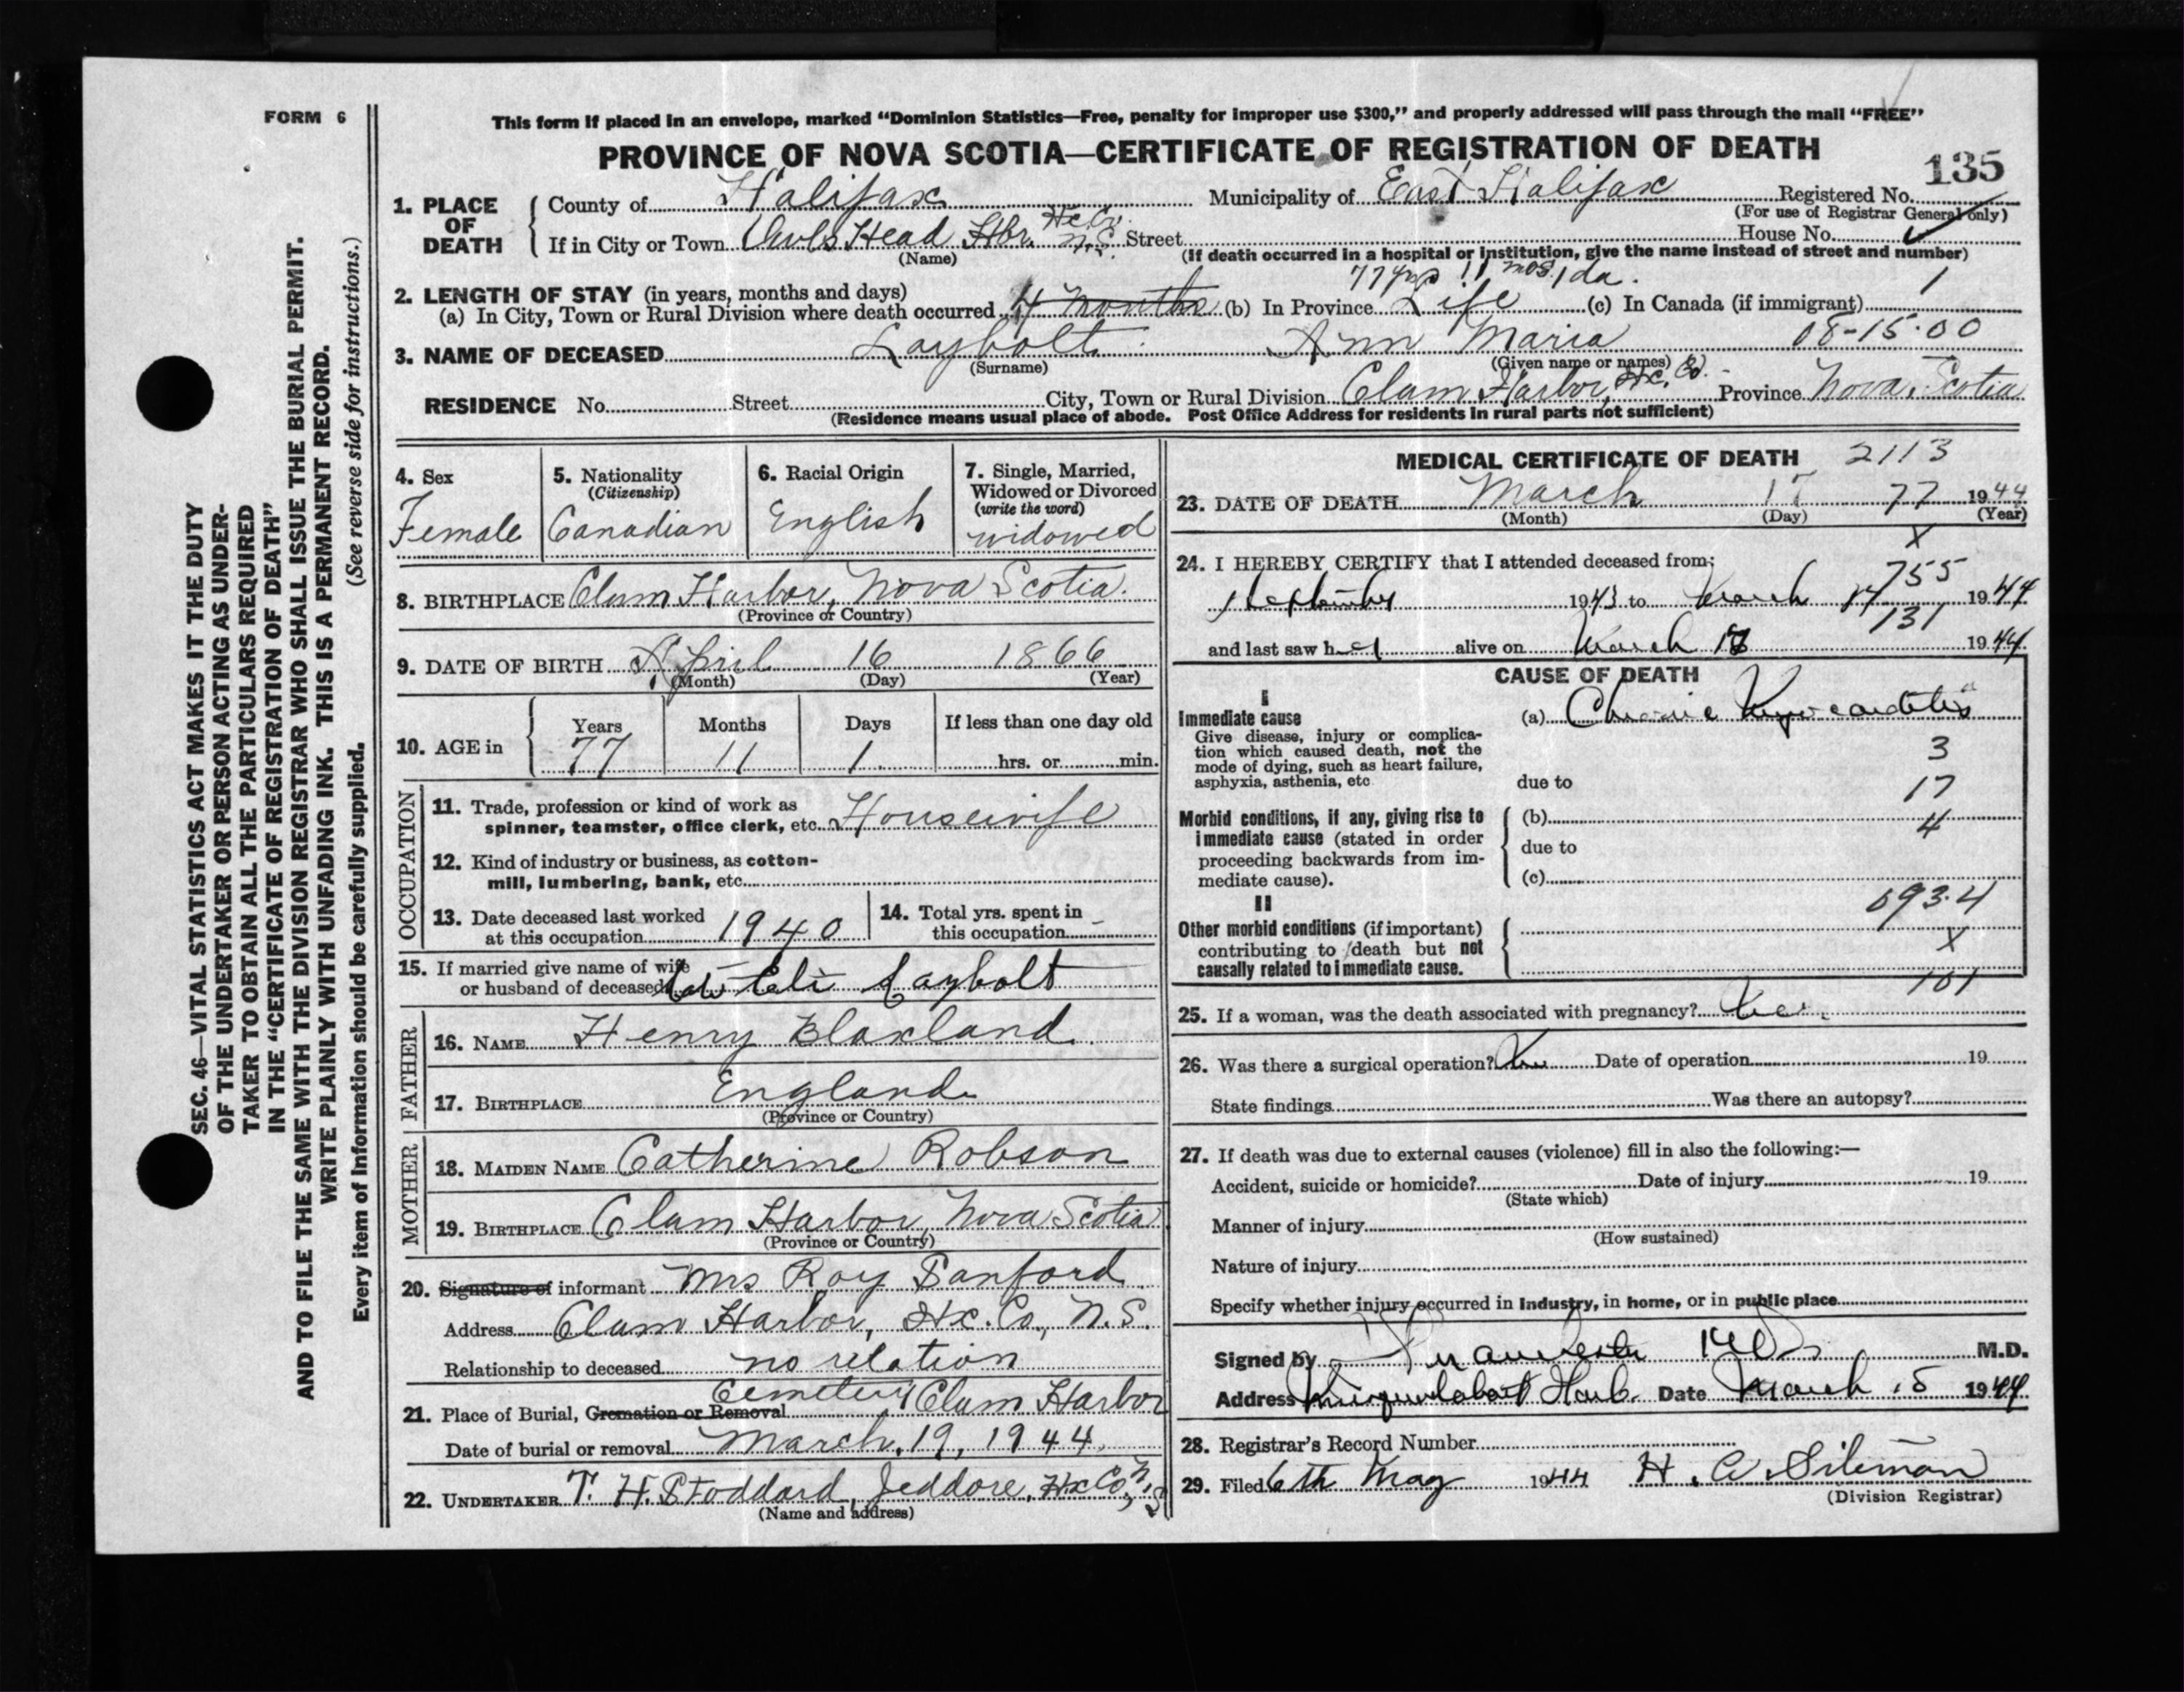 FORM 6
This form if placed in an envelope, marked “Dominion Statistics—Free, penalty for improper use $300,” and properly addressed will pass through the mail “FREE”
PROVINCE OF NOVA SCOTIA—CERTIFICATE OF REGISTRATION OF DEATH
135
1. PLACE OF DEATH
County of Halifax Municipality of East Halifax Registered No.
(For use of Registrar General only)
If in City or Town Owls Head Hbr. Hx Co. N.S. Street House No.
(Name) (If death occurred in a hospital or institution, give the name instead of street and number)
77 yrs 11 mos 1 da.
2. LENGTH OF STAY (in years, months and days)
(a) In City, Town or Rural Division where death occurred 4 months (b) In Province Life (c) In Canada (if immigrant) 1
3. NAME OF DECEASED Laybolt Ann Maria 08-15-00
(Surname) (Given name or names)
RESIDENCE No. Street City, Town or Rural Division Clam Harbor, Hx. Co. Province Nova Scotia
(Residence means usual place of abode. Post Office Address for residents in rural parts not sufficient)
4. Sex
Female
5. Nationality
(Citizenship)
Canadian
6. Racial Origin
English
7. Single, Married,
Widowed or Divorced
(write the word)
widowed
8. BIRTHPLACE Clam Harbor, Nova Scotia.
(Province or Country)
9. DATE OF BIRTH April 16 1866
(Month) (Day) (Year)
10. AGE in
Years Months Days If less than one day old
77 11 1 hrs. or min.
OCCUPATION
11. Trade, profession or kind of work as
spinner, teamster, office clerk, etc. Housewife
12. Kind of industry or business, as cotton-
mill, lumbering, bank, etc.
13. Date deceased last worked
at this occupation 1940
14. Total yrs. spent in
this occupation -
15. If married give name of wife
or husband of deceased Eli Laybolt
FATHER
16. NAME Henry Blakland
17. BIRTHPLACE England
(Province or Country)
MOTHER
18. MAIDEN NAME Catherine Robson
19. BIRTHPLACE Clam Harbor, Nova Scotia
(Province or Country)
20. Signature of informant Mrs Roy Sanford
Address Clam Harbor, Hx. Co., N.S.
Relationship to deceased no relation
21. Place of Burial, Cremation or Removal Cemetery Clam Harbor
Date of burial or removal March, 19, 1944
22. UNDERTAKER T. H. Stoddard, Jeddore, Hx Co, N.S.
(Name and address)
MEDICAL CERTIFICATE OF DEATH 2113
23. DATE OF DEATH March 17 77 1944
(Month) (Day) (Year)
X
24. I HEREBY CERTIFY that I attended deceased from:
755
September 1943 to March 17 1944
131
and last saw her alive on March 1944
CAUSE OF DEATH
I
Immediate cause
Give disease, injury or complica-
tion which caused death, not the
mode of dying, such as heart failure,
asphyxia, asthenia, etc
(a) Chronic Myocarditis
3
due to
17
Morbid conditions, if any, giving rise to
immediate cause (stated in order
proceeding backwards from im-
mediate cause).
(b)
4
due to
(c)
II
093.4
Other morbid conditions (if important)
contributing to death but not
causally related to immediate cause.
X
101
25. If a woman, was the death associated with pregnancy? No.
26. Was there a surgical operation? No Date of operation 19
State findings Was there an autopsy?
27. If death was due to external causes (violence) fill in also the following:—
Accident, suicide or homicide? Date of injury 19
(State which)
Manner of injury
(How sustained)
Nature of injury
Specify whether injury occurred in industry, in home, or in public place
Signed by M.D.
Address Harb. Date March 1944
28. Registrar's Record Number
29. Filed 6th May 1944 H. A. Sileman
(Division Registrar)
SEC. 46—VITAL STATISTICS ACT MAKES IT THE DUTY
OF THE UNDERTAKER OR PERSON ACTING AS UNDER-
TAKER TO OBTAIN ALL THE PARTICULARS REQUIRED
IN THE “CERTIFICATE OF REGISTRATION OF DEATH”
AND TO FILE THE SAME WITH THE DIVISION REGISTRAR WHO SHALL ISSUE THE BURIAL PERMIT.
WRITE PLAINLY WITH UNFADING INK. THIS IS A PERMANENT RECORD.
Every item of information should be carefully supplied. (See reverse side for instructions.)